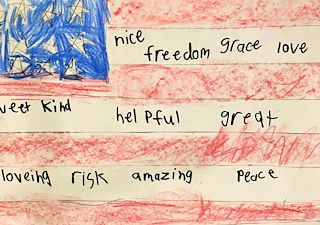 nice freedom grace love
kind helpful great
loveing risk amazing peace